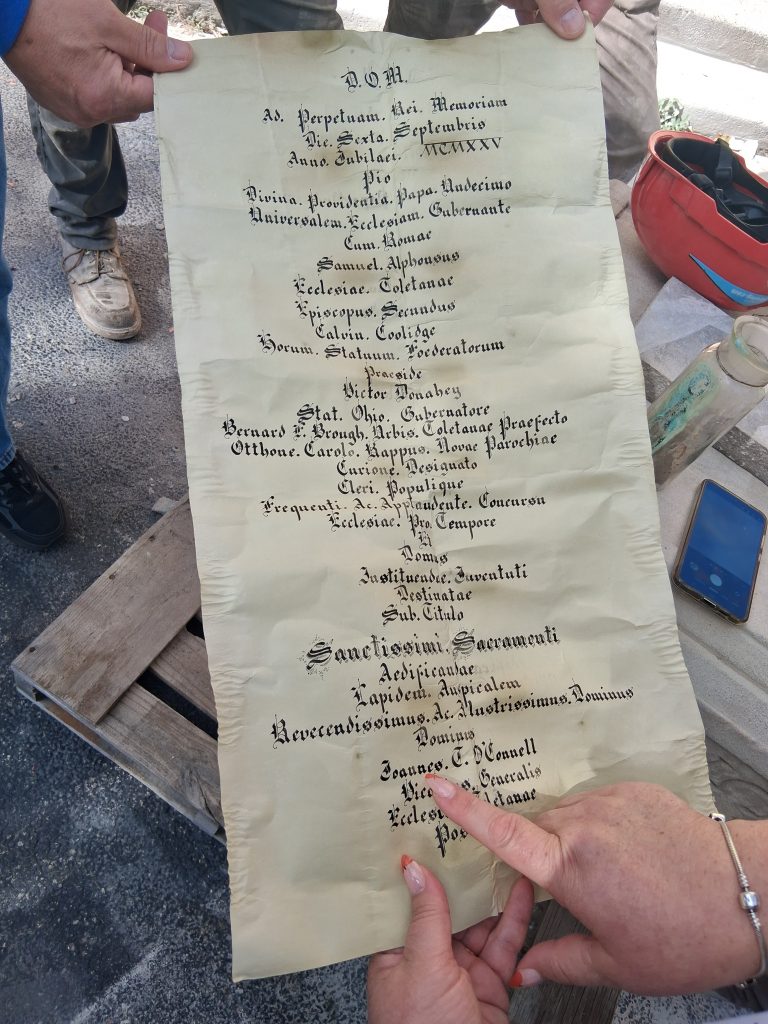 D.O.M.
Ad. Perpetuam. Rei. Memoriam
Die. Sexta. Septembris
Anno. Jubilaei. MCMXXV
Pio
Divina. Providentia. Papa. Undecimo
Universalem. Ecclesiam. Gubernante
Cum. Romae
Samuel. Alphonsus
Ecclesiae. Toletanae
Episcopus. Secundus
Calvin. Coolidge
Horum. Statuum. Foederatorum
Praeside
Victor Donahey
Stat. Ohio. Gabernatore
Bernard F. Brough. Urbis. Toletanae Praefecto
Otthone. Carolo. Rappus. Novae Parochiae
Curione. Designato
Cleri. Populique
Frequenti. Ac. Applaudente. Concursu
Ecclesiae. Pro. Tempore
Et
Domus
Instituendae. Juventuti
Destinatae
Sub. Titulo
Sanctissimi. Sacramenti
Aedificandae
Lapidem. Auspicalem
Reverendissimus. Ac. Illustrissimus. Dominus
Dominus
Joannes. T. O'Connell
Generalis
Pos